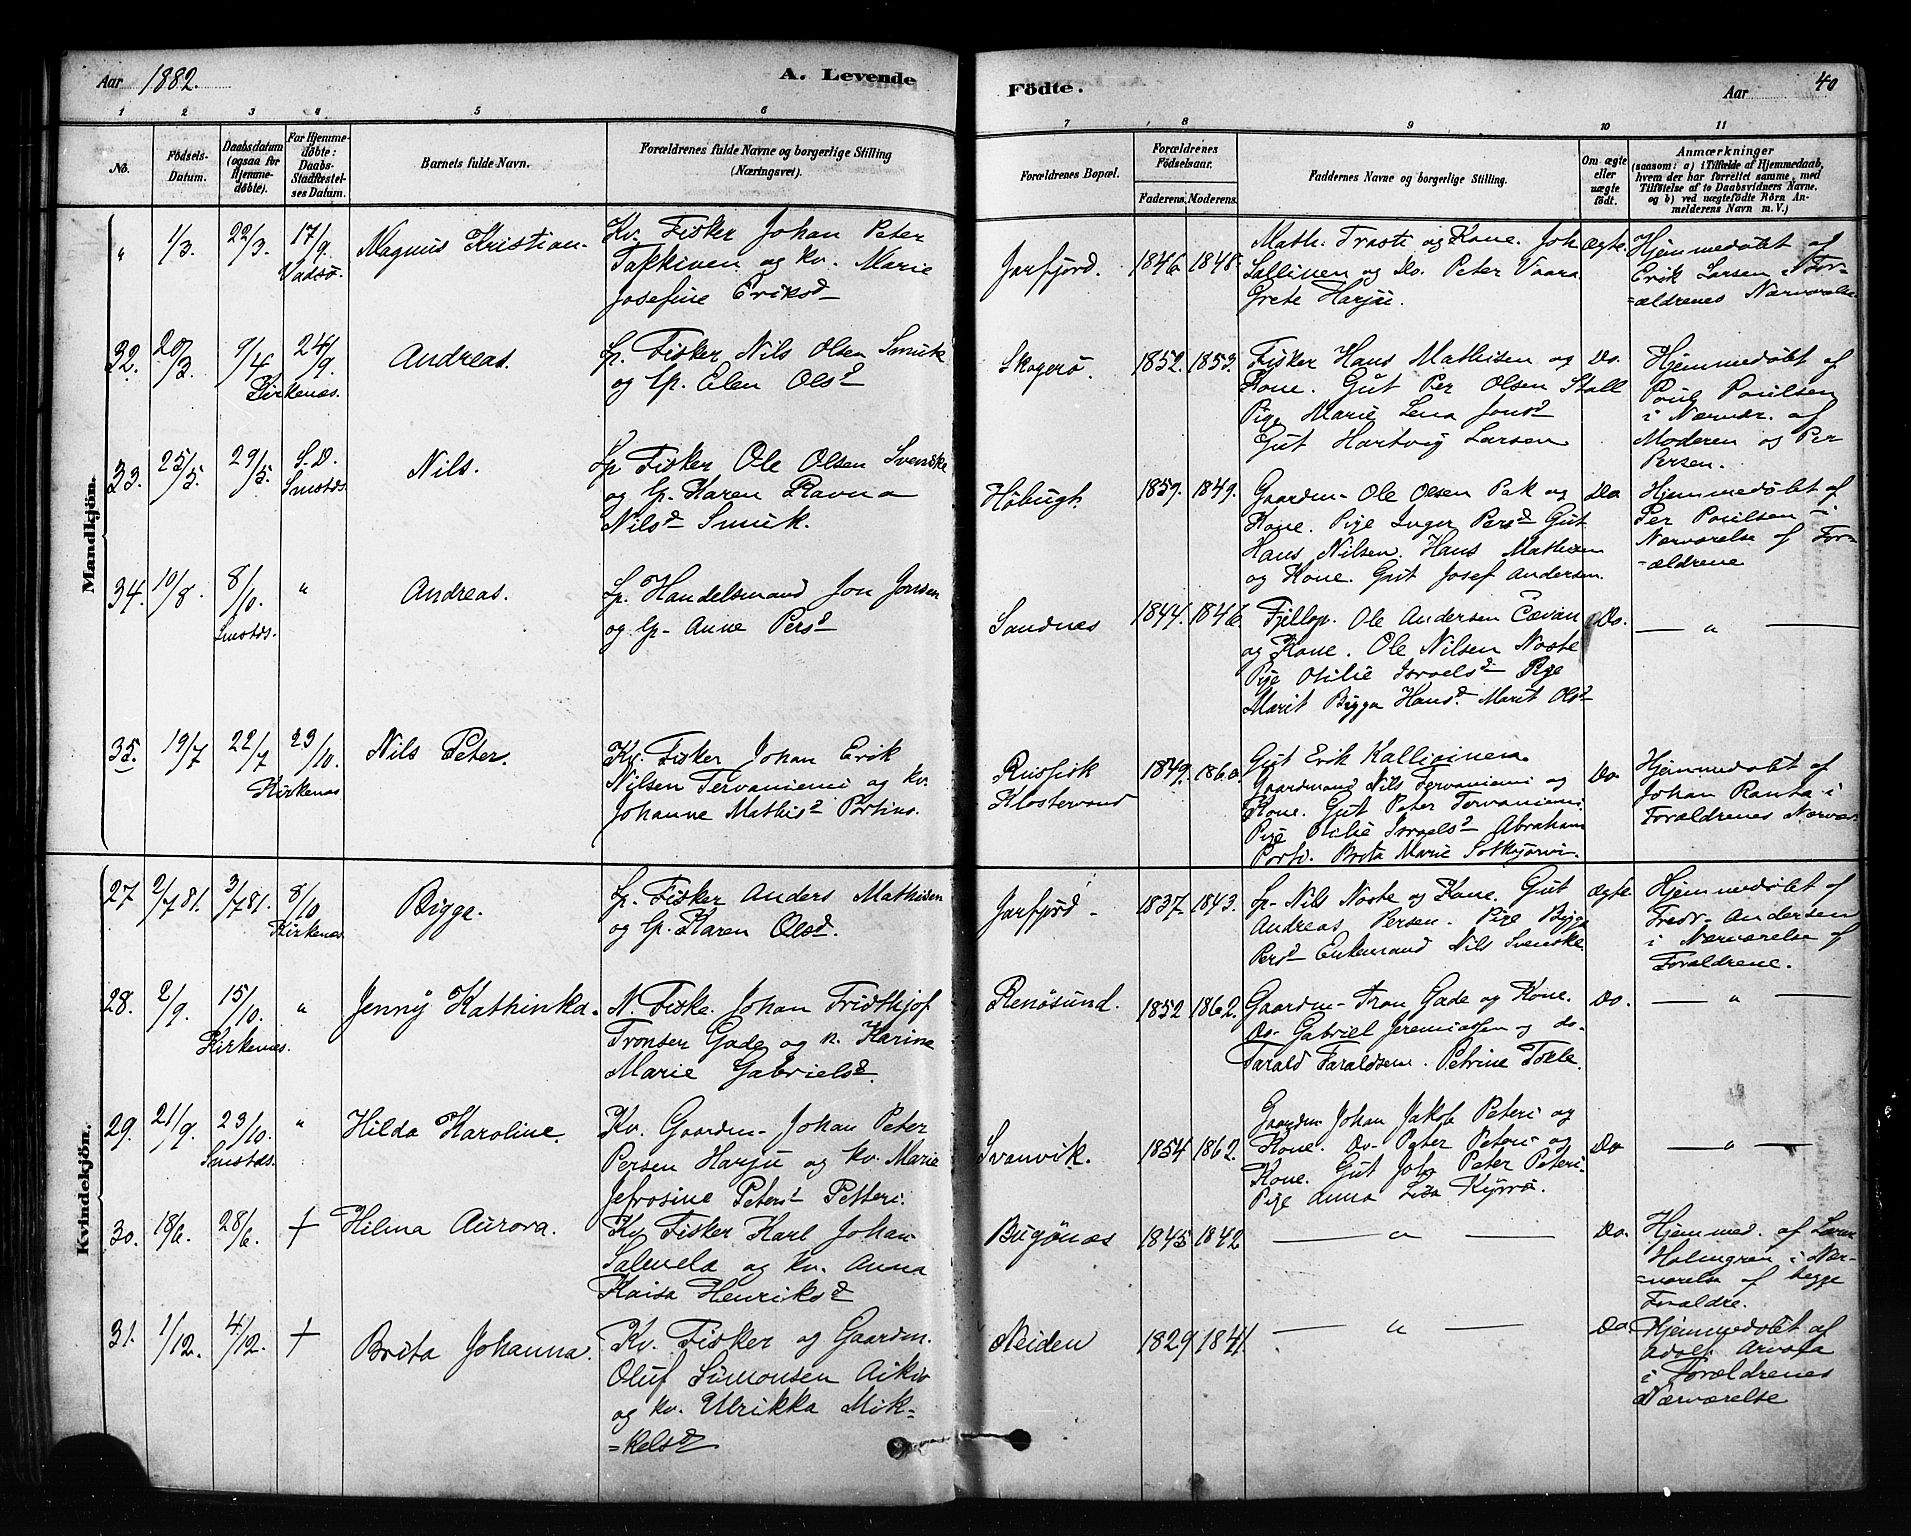 Aar 1882.
A. Levende
Födte.
Aar
40
1 2 3 4 5 6 7 8 9 10 11
No.
Födsels-
Datum.
Daabsdatum
(ogsaa for
Hjemme-
døbte).
For Hjemme-
døbte:
Daabs-
Stadfæstel-
ses Datum.
Barnets fulde Navn.
Forældrenes fulde Navne og borgerlige Stilling
(Næringsvei).
Forældrenes Bopæl.
Forældrenes
Födselsaar.
Faderens. Moderens.
Faddernes Navne og borgerlige Stilling.
Om ægte
eller
uægte
født.
Anmærkninger
(saasom: a) i Tilfælde af Hjemmedaab,
hvem der har forrettet samme, med
Tilføielse af to Daabsvidners Navne,
og b) ved uægtefødte Börn An-
melderens Navn m. V.)
Mandkjön.
" 1/3. 22/3. 17/9 Vadsø. Magnus Kristian.
Kv. Fisker Johan Peter
Takkinen og kv. Marie
Josefine Eriksd
Jarfjord. 1846. 1848.
Math. Trasti og Kone. Joh
Sallinen og Do. Peter Vaara
Grete Harju.
ægte.
Hjemmedøbt af
Erik Larsen i For-
=ældrenes Nærværelse
32. 20/3 9/4 24/9 Kirkenæs. Andreas.
Lp. Fisker Nils Olsen Smuk
og lp. Elen Olsd
Skogerø. 1852. 1853.
Fisker Hans Mathisen og
Kone. Gut Per Olsen Stall
Pige Marie Lena Jonsd
Gut Hartvig Larsen
Do.
Hjemmedøbt af
Poul Poulsen
i Nærvær. af
Moderen og Per
Persen.
33. 25/5. 29/5. S.D. Smstds. Nils.
Lp Fisker Ole Olsen Svenske
og lp. Karen Ravna
Nilsd Smuk.
Høbugt 1859. 1849.
Gaardm- Ole Olsen Pak og
Kone. Pige Inger Persd Gut
Hans Nilsen. Hans Mathisen
og Kone. Gut Josef Andersen.
Do
Hjemmedøbt af
Per Poulsen i
Nærværelse af For-
=ældrene
34. 10/8 8/10. " Smstds. Andreas.
Lp. Handelsmand Jon Jonsen
og lp- Anne Persd
Sandnes 1844. 1846.
Fjellop. Ole Andersen Cævan
og Kone. Ole Nilsen Noste
Pige Otilie Israelsd Pige
Marit Bigga Hansd. Marit Olsd
Do.
— " —
35. 19/7 22/7 23/10. Kirkenæs Nils Peter.
Kv. Fisker Johan Erik
Nilsen Tervaniemi og kv.
Johanne Mathisd Portins.
Russisk
Klostervand 1849. 1860
Gut Erik Kallioinen
Gaardmand Nils Tervaniemi og
Kone. Gut Peter Tervaniemi.
Pige Otilie Israelsd Abraham
Porti. Brita Marie Sotkajærvi.
Do
Hjemmedøbt af
Johan Ranta i
Forældrenes Nærvær
Kvindekjön.
27 2/7 81. 3/7 81. 8/10 Kirkenæs. Bigge.
Lp. Fisker Anders Mathisen
og lp. Karen Olsd.
Jarfjord - 1837. 1843.
Lp- Nils Noste og Kone. Gut
Andreas Persen. Pige Bigga
Persd Enkemand Nils Svenske
ægte
Hjemmedøbt af
Fredr- Andersen
i Nærværelse af
Forældrene.
28. 2/9. 15/10. " Kirkenæs. Jenny Kathinka.
N. Fiske. Johan Fridthjof
Tronsen Gade og n. Karine
Marie Gabrielsd.
Renøsund. 1852 1862.
Gaardm- Tron Gade og Kone.
Do- Gabriel Jeremiassen og do.
Tarald Taraldsen. Petrine Tolle.
Do.
— " —
29. 21/9. 23/10. " Smstds. Hilda Karoline.
Kv. Gaardm- Johan Peter
Persen Harju og kv. Marie
Jefrosine Petersd Petteri.
Svanvik. 1854 1862.
Gaardm- Johan Jakob Peteri og
Kone. Do- Peter Peteri og
Kone. Gut Joh Peter Peteri.
Pige Anna Lisa Kyrrø.
Do
— " —
30. 18/6. 28/6. + Hilma Aurora.
Kv Fisker Karl Johan
Salmela og kv. Anna
Kaisa Henriksd
Bugønæs 1845 1842
— " —
Do.
Hjemmed. af
Holmgran i Nær-
=værelse af begge
Forældre.
31. 1/12. 4/12. + Brita Johanna.
Kv. Fisker og Gaardm.
Oluf Simonsen Aikio
og kv. Ulrikka Mik-
=kelsd
Neiden 1829 1841.
— " —
Do
Hjemmedøbt af
Adolf Arvola
i Forældrenes
Nærværelse